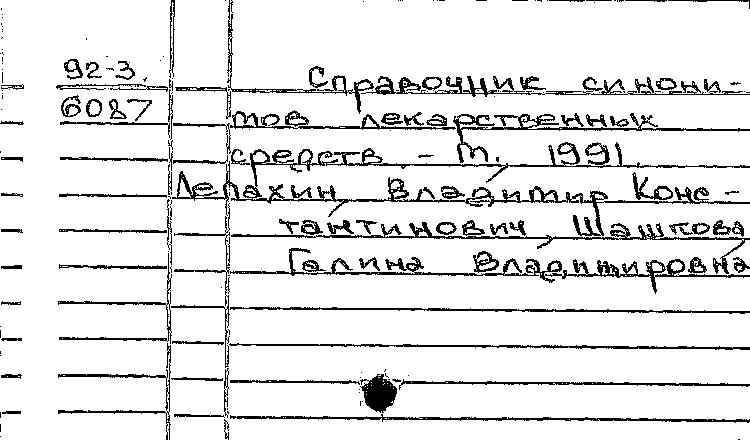 92-3.
6087
Справочник синони-
мов лекарственных
средств. - М., 1991.
Лепахин, Владимир Конс-
тантинович, Машкова
Галина Владимировна